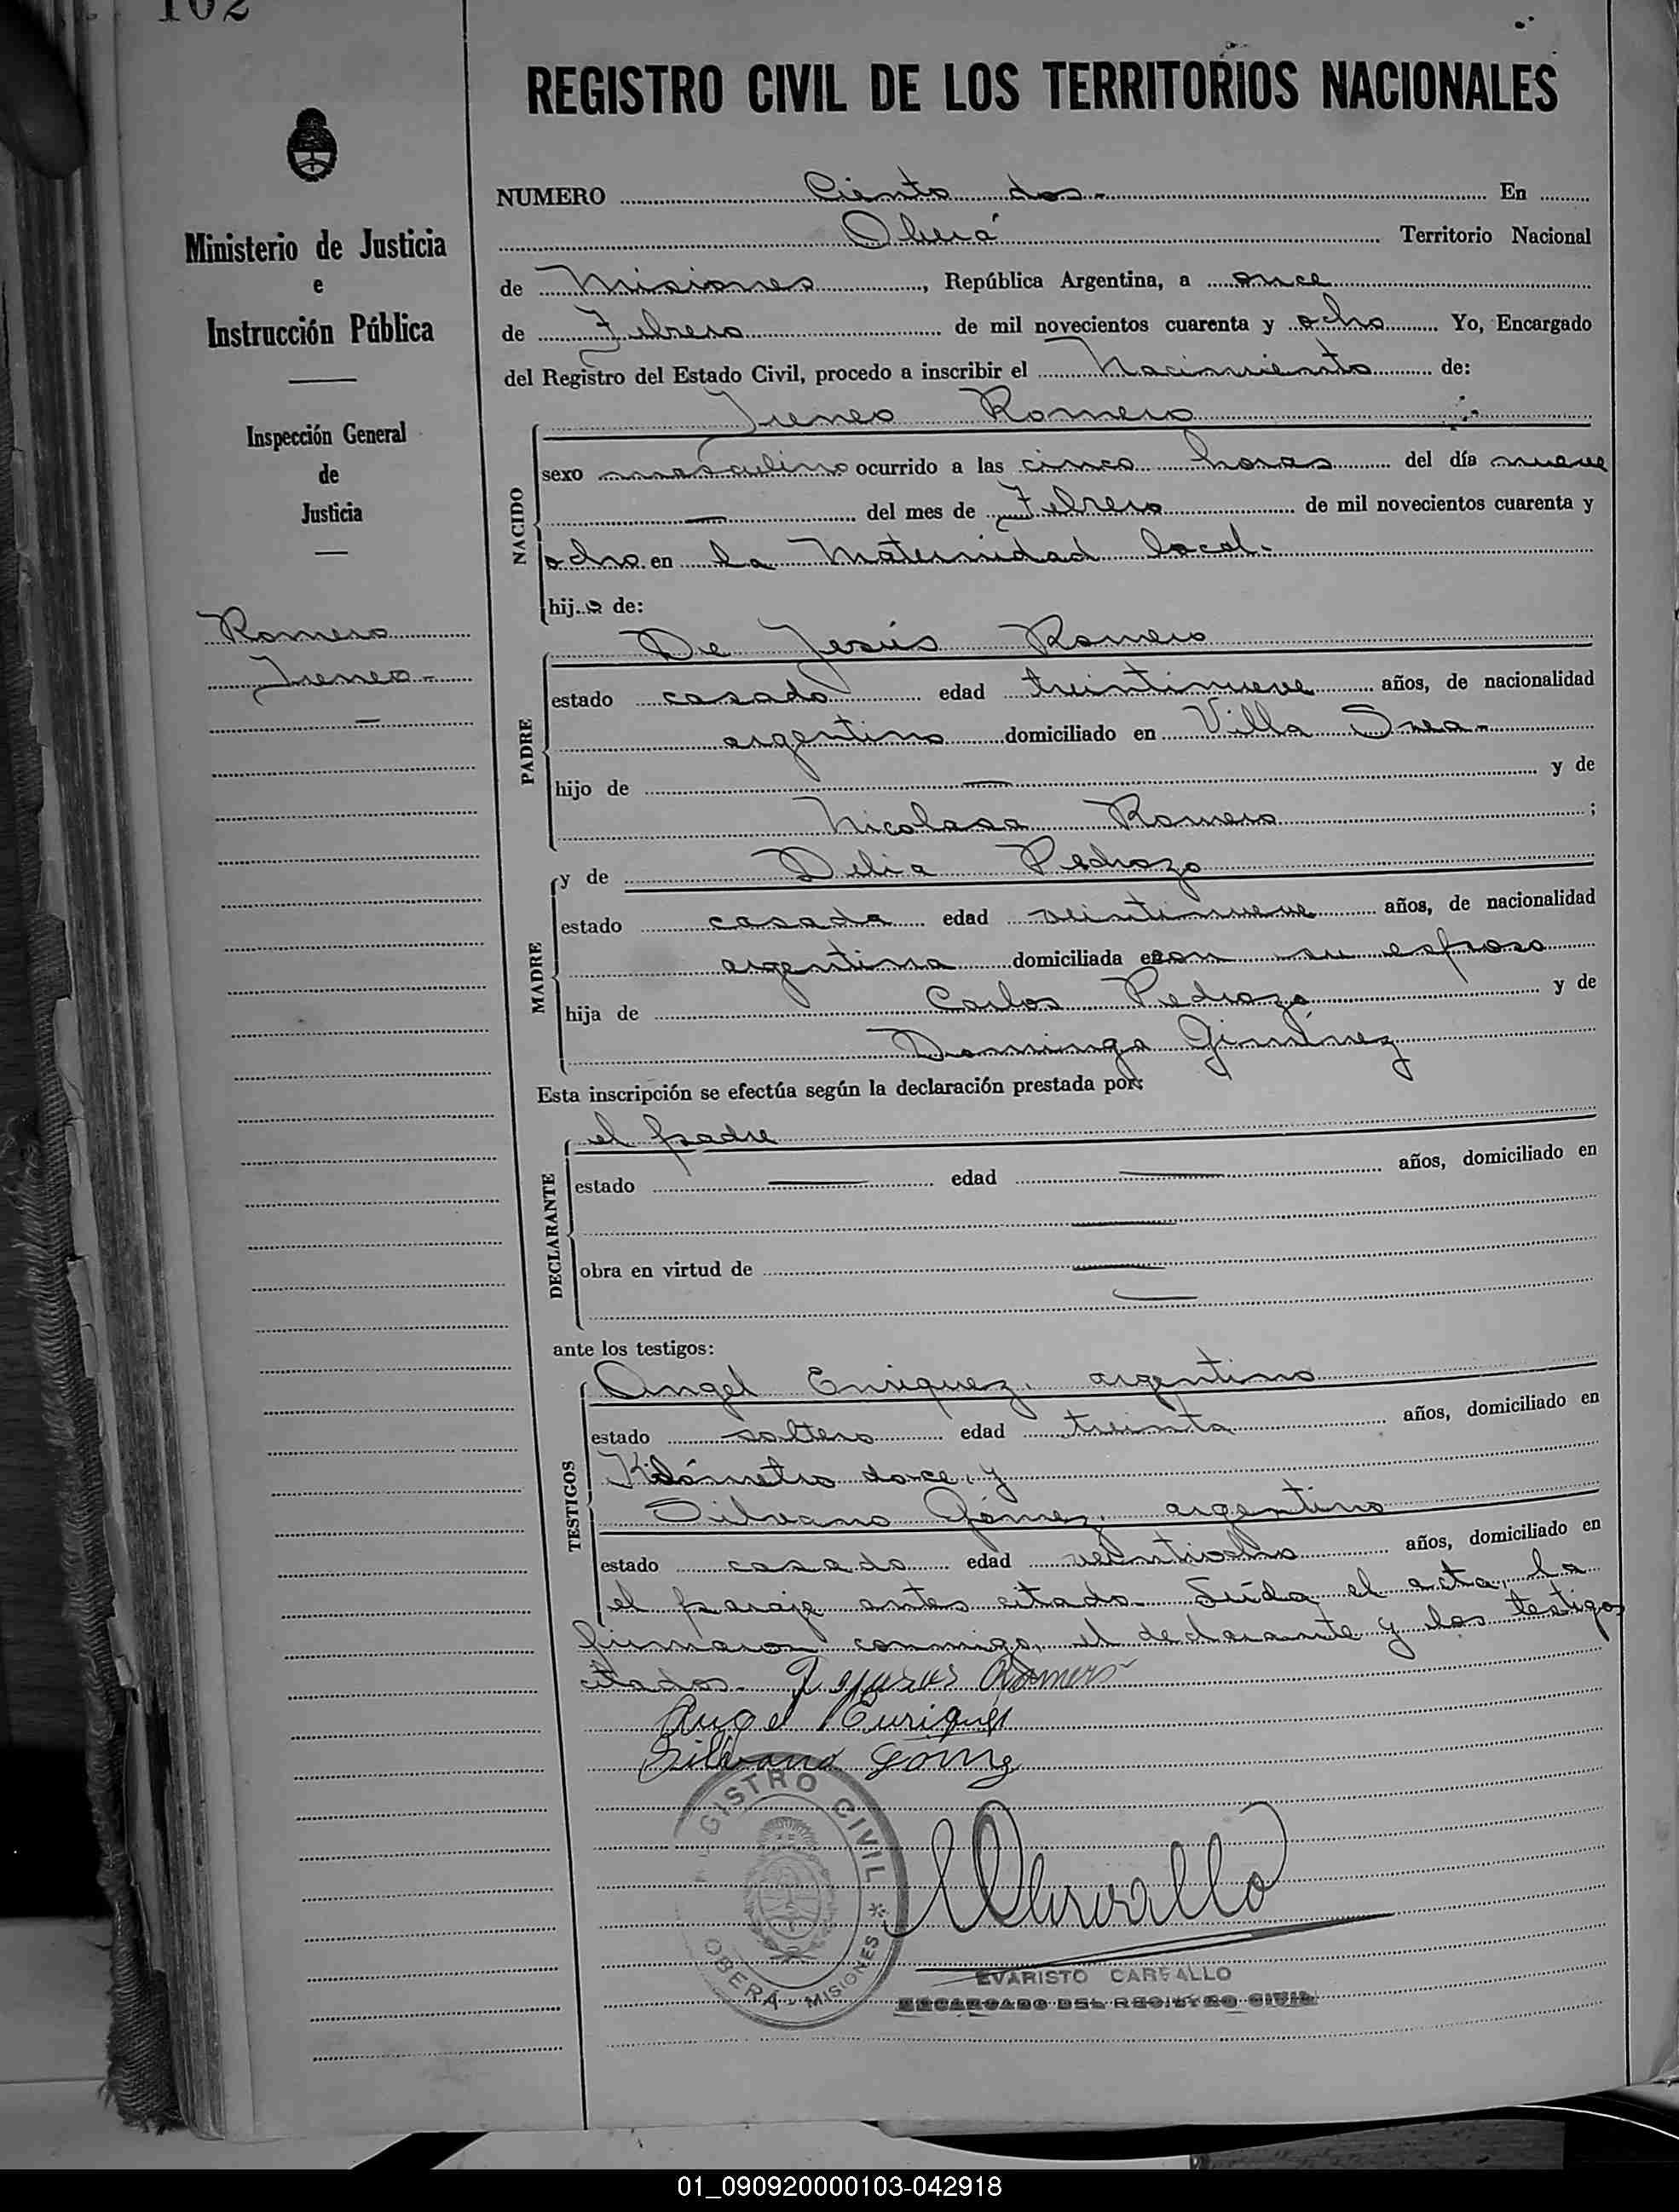 102
REGISTRO CIVIL DE LOS TERRITORIOS NACIONALES
Ministerio de Justicia
e
Instrucción Pública
Inspección General
de
Justicia
Romero
Ireneo
NUMERO Ciento dos.- En
Oberá Territorio Nacional
de Misiones, República Argentina, a once
de Febrero de mil novecientos cuarenta y ocho Yo, Encargado
del Registro del Estado Civil, procedo a inscribir el Nacimiento de:
Ireneo Romero
NACIDO
sexo masculino ocurrido a las cinco horas del día nueve
— del mes de Febrero de mil novecientos cuarenta y
ocho en la Maternidad local.
hijo de:
PADRE
De Jesús Romero
estado casado edad treintinueve años, de nacionalidad
argentino domiciliado en Villa Svea.-
hijo de — y de
Nicolasa Romero;
MADRE
y de Delia Pedrozo
estado casada edad veintinueve años, de nacionalidad
argentina domiciliada con su esposo
hija de Carlos Pedrozo y de
Dominga Giménez
Esta inscripción se efectúa según la declaración prestada por:
DECLARANTE
el padre
estado — edad — años, domiciliado en
—
obra en virtud de —
—
ante los testigos:
TESTIGOS
Angel Enriquez, argentino
estado soltero edad treinta años, domiciliado en
Kilómetro doce, y
Silvano Gómez, argentino
estado casado edad veintiocho años, domiciliado en
el paraje antes citado. Leída el acta, la
firmaron conmigo, el declarante y los testigos
citados.- Romero
Angel Enriquez
Silvano Gomez
REGISTRO CIVIL * OBERA - MISIONES *
EVARISTO CARVALLO
ENCARGADO DEL REGISTRO CIVIL
01_090920000103-042918